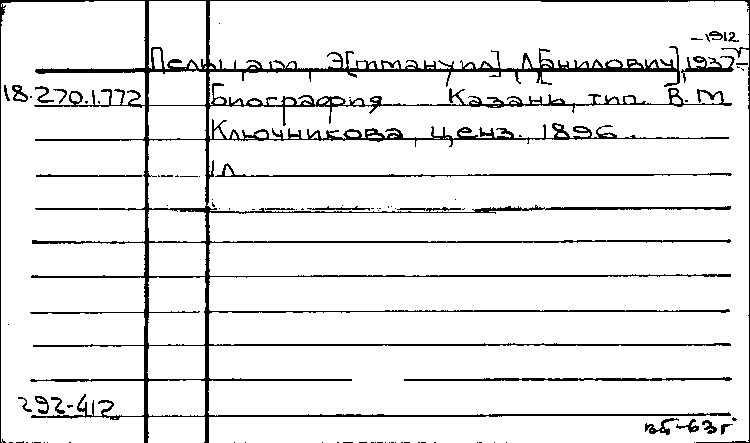 -1912
Пельцам, Э[ммануил] Д[анилович], 1937-
18.270.1.772 Биография. Казань, тип. В.М
Ключникова, ценз. 1896.
1 л.
292-412
вб-63г